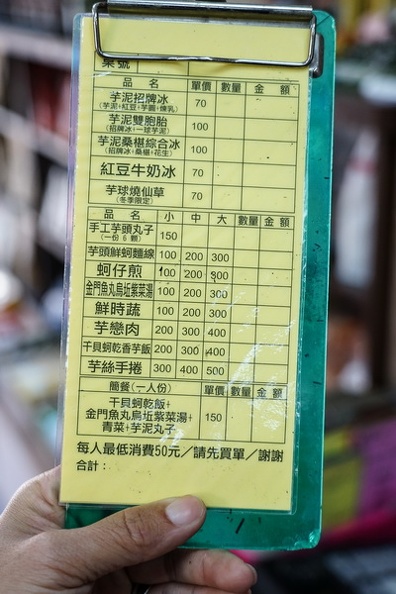 桌號
品名 單價 數量 金額
芋泥招牌冰 70
(芋泥+紅豆+芋圓+煉乳)
芋泥雙胞胎 100
(招牌冰+一球芋泥)
芋泥桑椹綜合冰 100
(招牌冰+桑椹+花生)
紅豆牛奶冰 70
芋球燒仙草 70
(冬季限定)
品名 小 中 大 數量 金額
手工芋頭丸子 150
(一份6顆)
芋頭鮮蚵麵線 100 200 300
蚵仔煎 100 200 300
金門魚丸烏坵紫菜湯 100 200 300
鮮時蔬 100 200 300
芋戀肉 200 300 400
干貝蚵乾香芋飯 200 300 400
芋絲手捲 300 400 500
簡餐(一人份) 單價 數量 金額
干貝蚵乾飯+
金門魚丸烏坵紫菜湯+ 150
青菜+芋泥丸子
每人最低消費50元/請先買單/謝謝
合計: